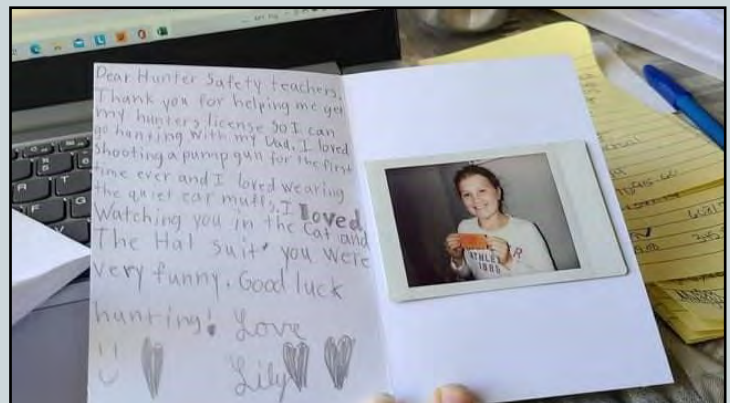 Dear Hunter Safety teachers,
Thank you for helping me get
my hunters license so I can
go hunting with my Dad. I loved
shooting a pump gun for the first
time ever and I loved wearing
the quiet ear muffs. I loved
Watching you in the Cat and
The Hal suit. you were
very funny. Good luck
hunting! Love
Lily
ATHLE
1989